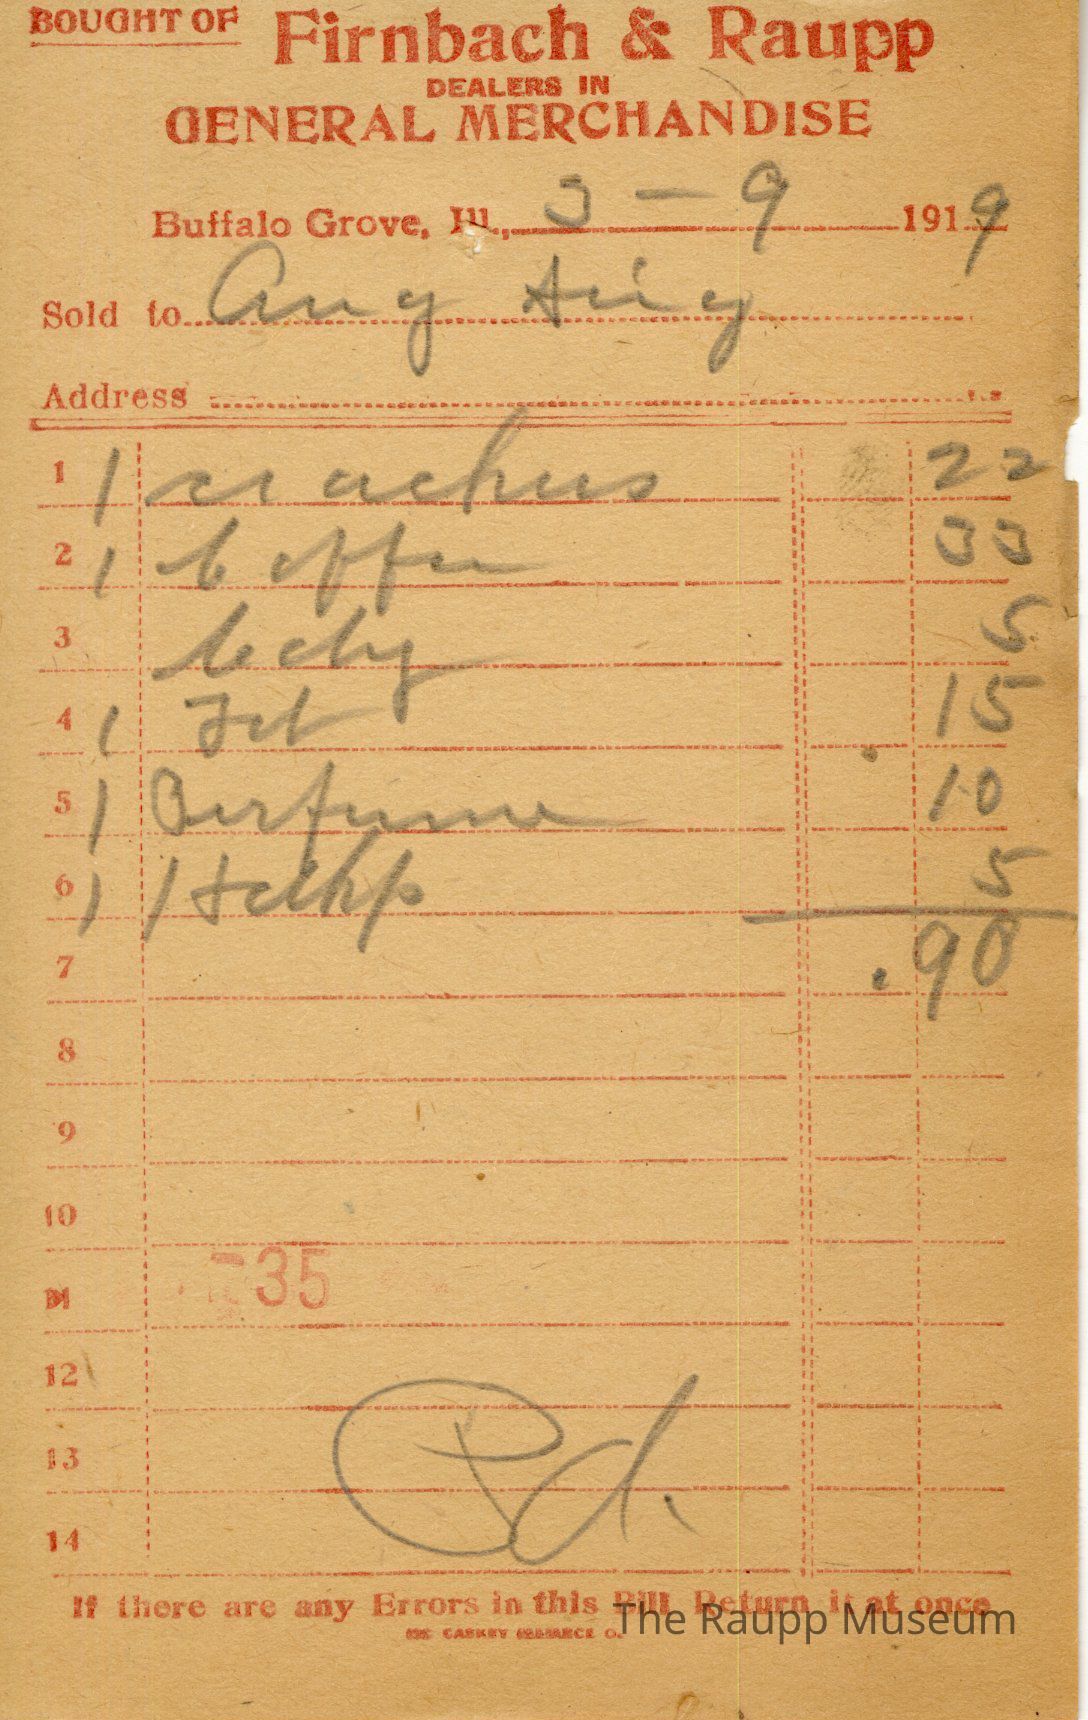 BOUGHT OF Firnbach & Raupp
DEALERS IN
GENERAL MERCHANDISE
Buffalo Grove, Ill., 3 - 9 1919
Sold to Aug
Address
1 1 crachus 22
2 1 Coffee 33
3 5
4 1 15
5 1 Perfume 10
6 1 5
7 .90
8
9
10
35
12
13
14
Pd.
If there are any Errors in this Bill Return it at once
The Raupp Museum